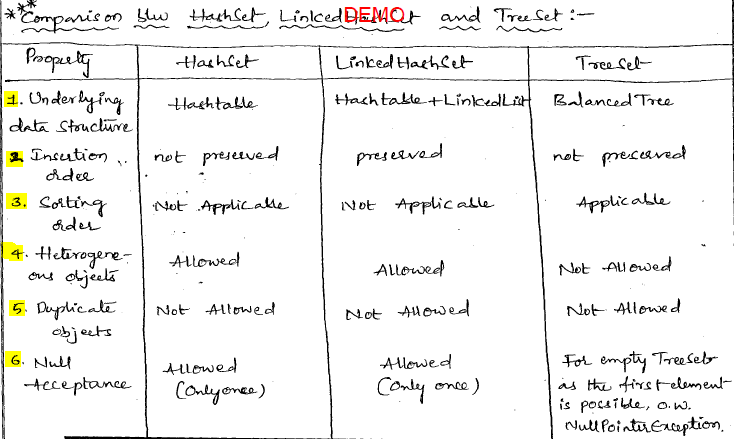 *** Comparison b/w HashSet, LinkedHashSet and TreeSet :—
DEMO
Property HashSet LinkedHashSet TreeSet
1. Underlying data structure Hashtable Hashtable + LinkedList BalancedTree
2. Insertion order not preserved preserved not preserved
3. Sorting order Not Applicable Not Applicable Applicable
4. Heterogeneous objects Allowed Allowed Not Allowed
5. Duplicate objects Not Allowed Not Allowed Not Allowed
6. Null Acceptance Allowed (Only once) Allowed (Only once) For empty TreeSet as the first element is possible, o.w. NullPointerException.